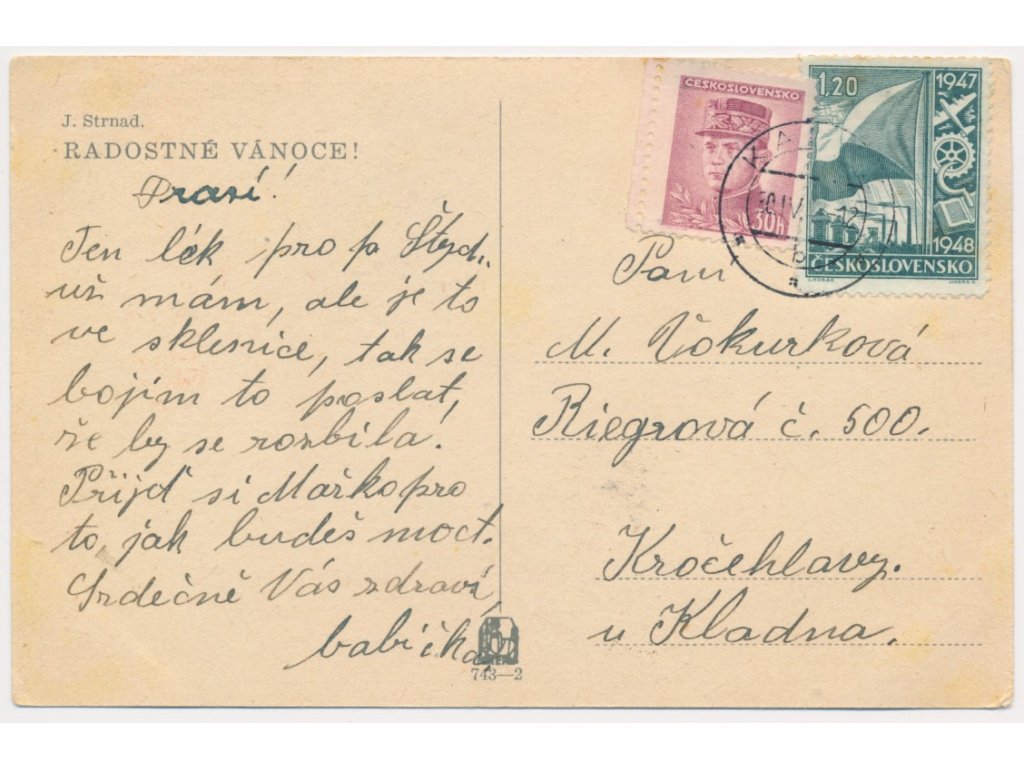 J. Strnad.
RADOSTNÉ VÁNOCE!
Drazí!
Ten lék pro p.
už mám, ale je to
ve sklenice, tak se
bojím to poslat,
že by se rozbila!
Přijď si Mařko pro
to, jak budeš moct.
Srdečně Vás zdraví
babička
743—2
ČESKOSLOVENSKO
30H
1,20
1947
1948
ČESKOSLOVENSKO
Paní
M. Vokurková
Riegrová č. 500.
Kročehlavy.
u Kladna.